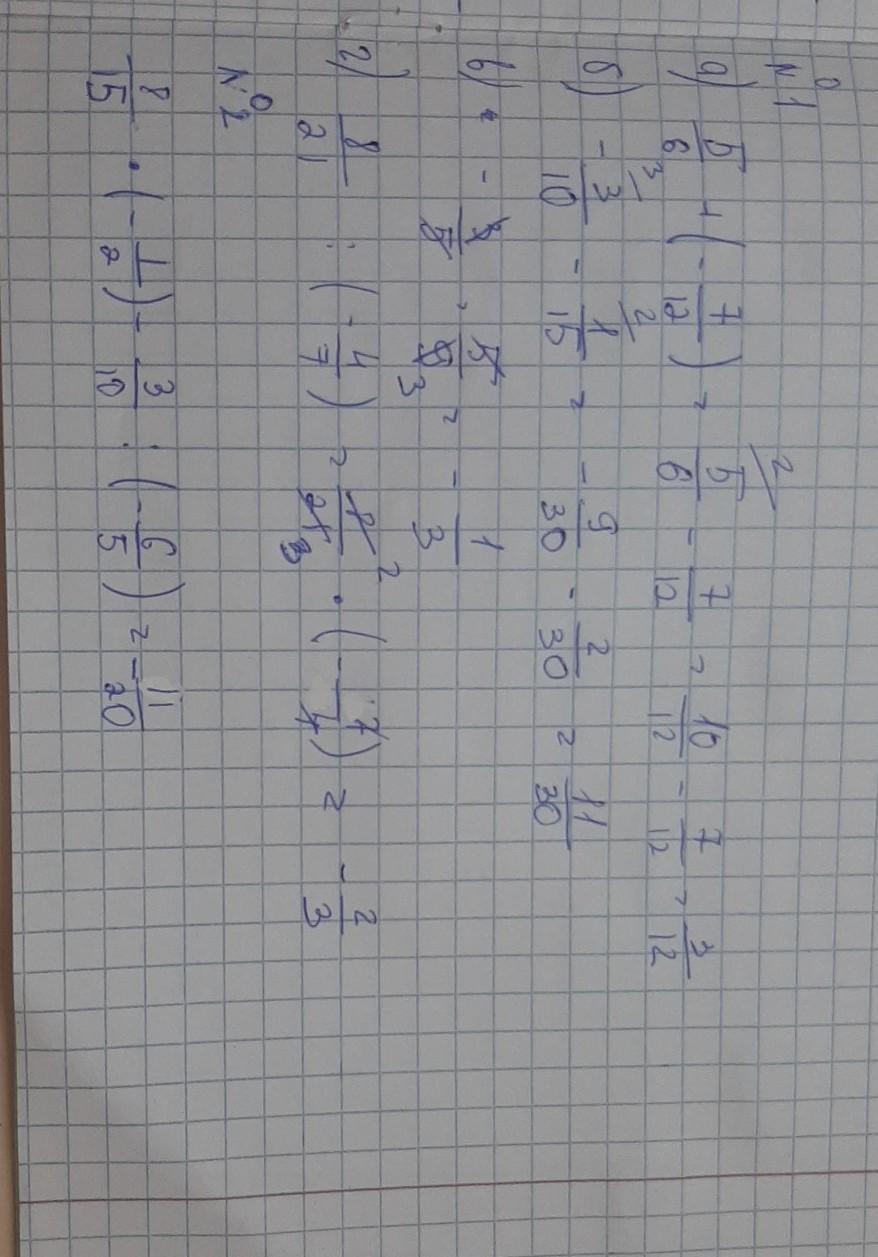 №1
а) 5/6 + (-7/12) = 5/6 - 7/12 = 10/12 - 7/12 = 3/12
б) -3/10 - 1/15 = -9/30 - 2/30 = 11/30
в) · 5/ = -1/3
г) 8/21 : (-4/7) = 8/21 · (-7/4) = -2/3
№2
8/15 · (-1/2) - 3/10 : (-6/5) = -11/20